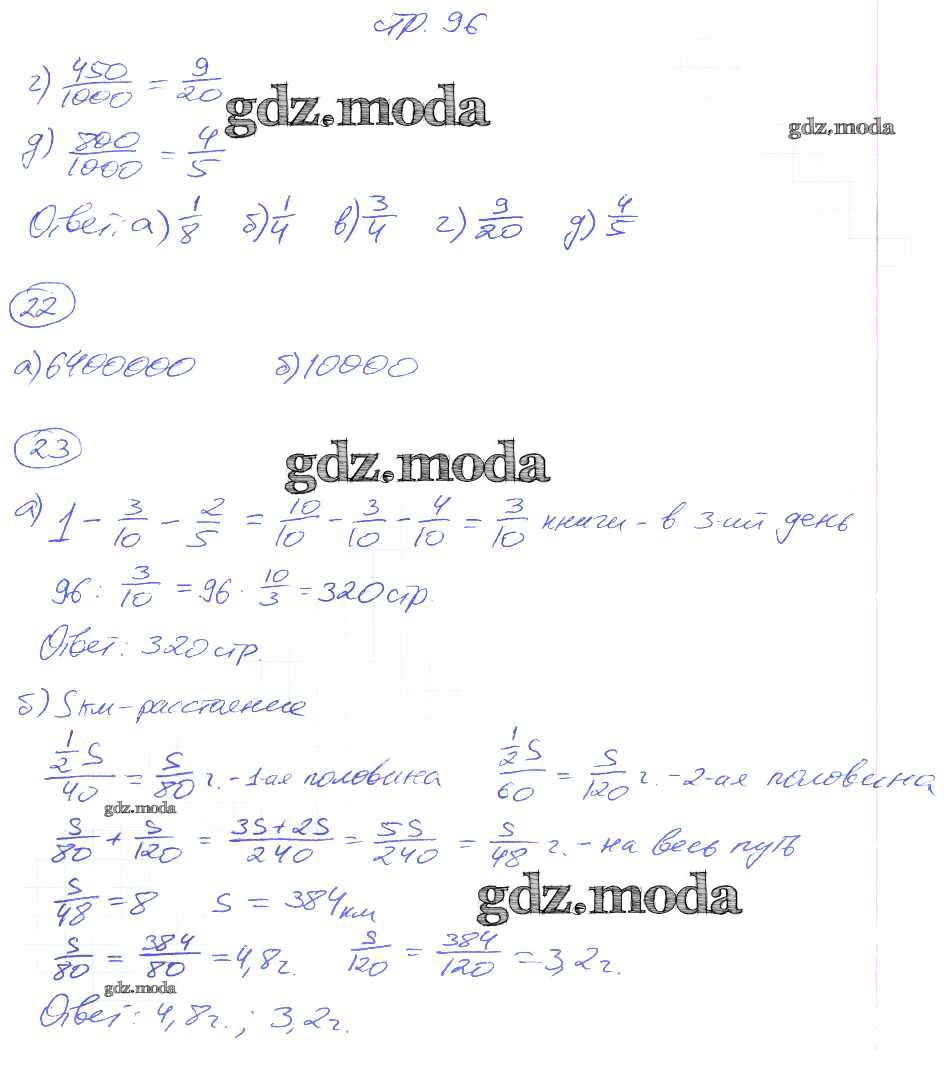 стр. 96
г) 450/1000 = 9/20
gdz.moda
gdz.moda
д) 800/1000 = 4/5
Ответ: а) 1/8 б) 1/4 в) 3/4 г) 9/20 д) 4/5
22
а) 6400000 б) 10000
23
gdz.moda
а) 1 - 3/10 - 2/5 = 10/10 - 3/10 - 4/10 = 3/10 книги - в 3-ий день
96 : 3/10 = 96 · 10/3 = 320 стр.
Ответ: 320 стр.
б) S км - расстаение
1/2 S/40 = S/80 г. - 1-ая половина 1/2 S/60 = S/120 г. - 2-ая половина
gdz.moda
S/80 + S/120 = 3S+2S/240 = 5S/240 = S/48 г. - на весь путь
gdz.moda
S/48 = 8 S = 384 км
S/80 = 384/80 = 4,8 г. S/120 = 384/120 = 3,2 г.
gdz.moda
Ответ: 4,8 г.; 3,2 г.